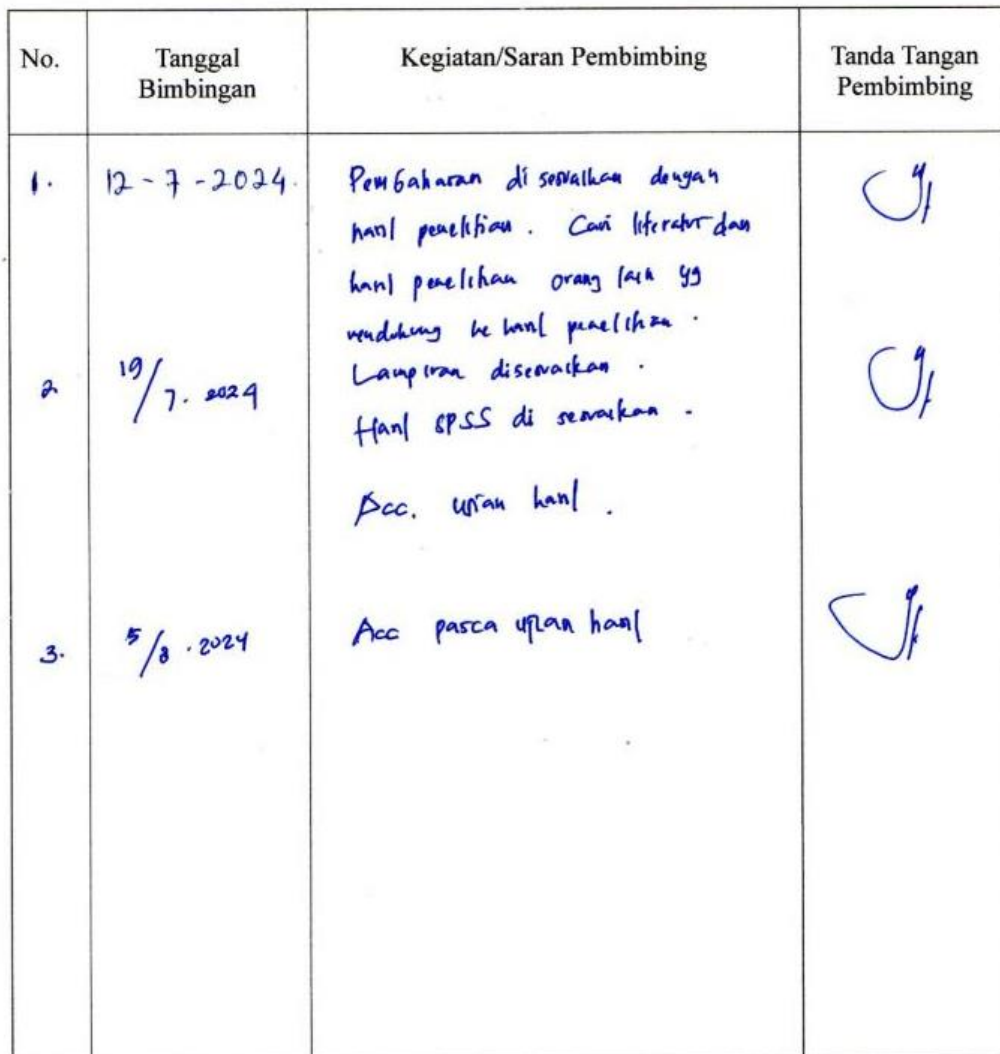 No.
Tanggal Bimbingan
Kegiatan/Saran Pembimbing
Tanda Tangan Pembimbing
1. 12-7-2024. Pembahasan di sesuaikan dengan
hasil penelitian. Cari literatur dan
hasil penelitian orang lain yg
mendukung ke hasil penelitian.
2. 19/7.2024 Lampiran disesuaikan.
Hasil SPSS di sesuaikan.
Acc. ujian hasil.
3. 5/8.2024 Acc pasca ujian hasil